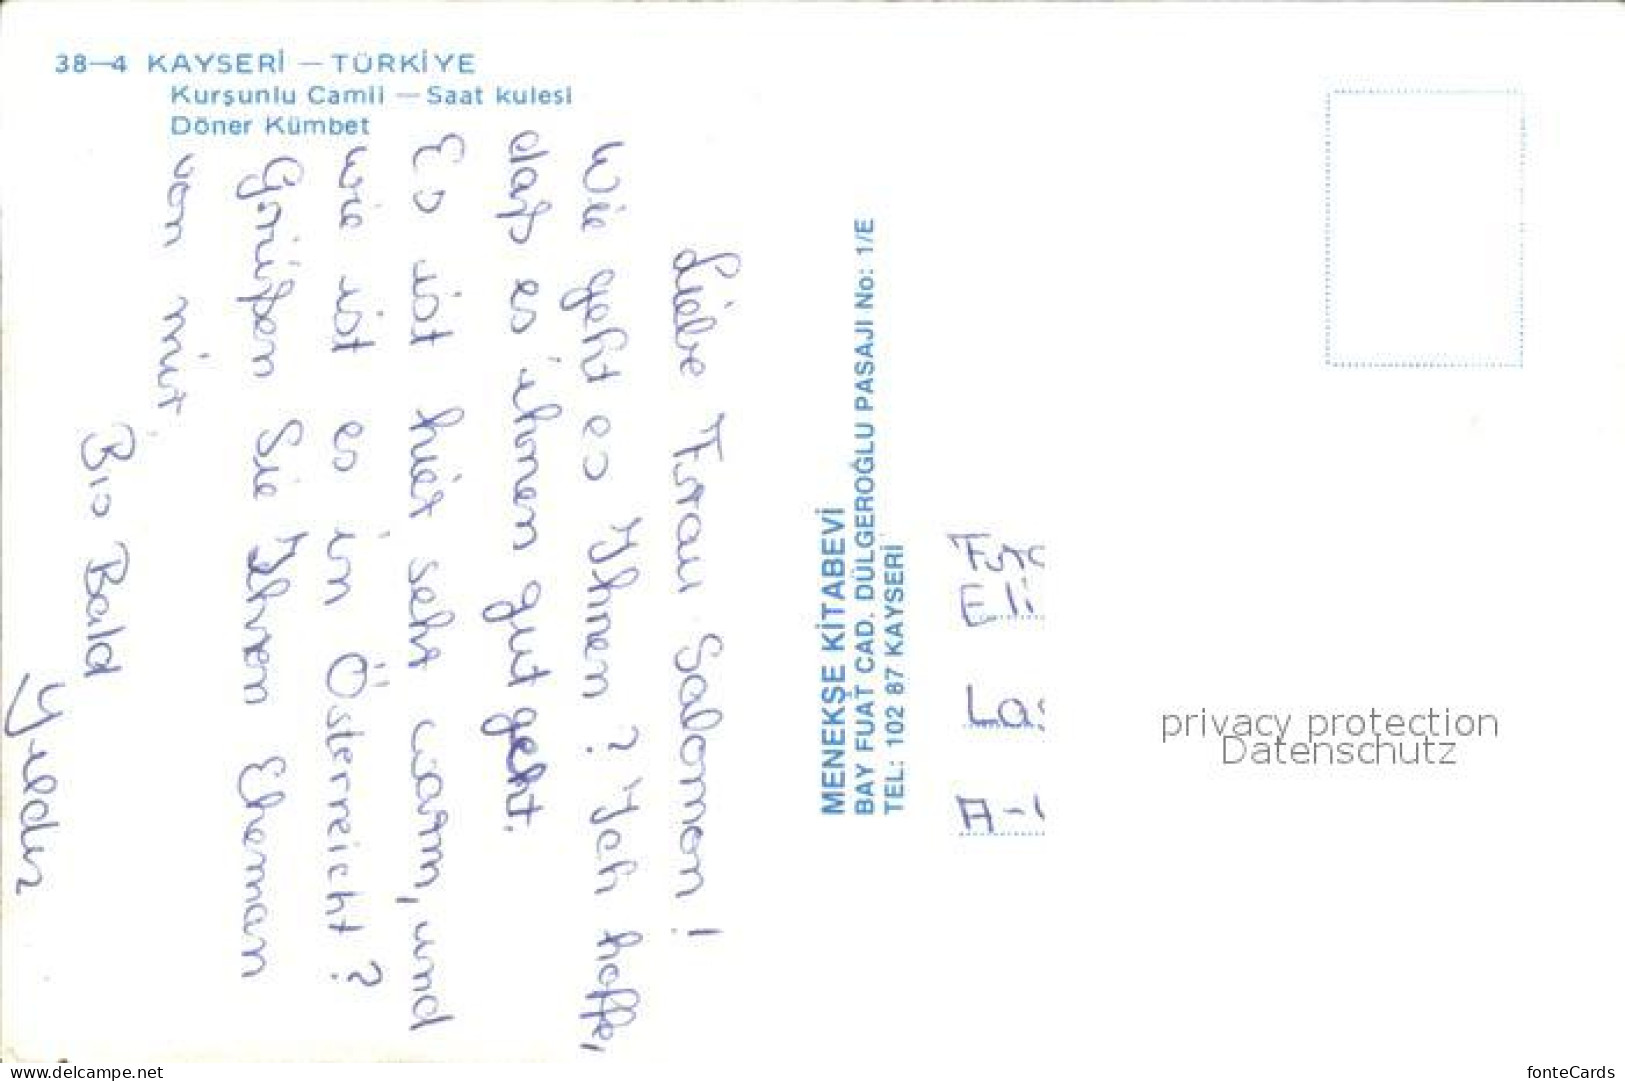 38—4 KAYSERİ — TÜRKİYE
Kurşunlu Camii — Saat kulesi
Döner Kümbet
Liebe Frau Salomon!
Wie geht es Ihnen? Ich hoffe,
daß es ihnen gut geht.
Es ist hier sehr warm, und
wie ist es in Österreicht?
Grüßen Sie Ihren Eheman
von mir
Bis Bald
Yıldız
MENEKŞE KİTABEVİ
BAY FUAT CAD. DÜLGEROĞLU PASAJI No: 1/E
TEL: 102 87 KAYSERİ
A-
privacy protection
Datenschutz
www.delcampe.net
fonteCards